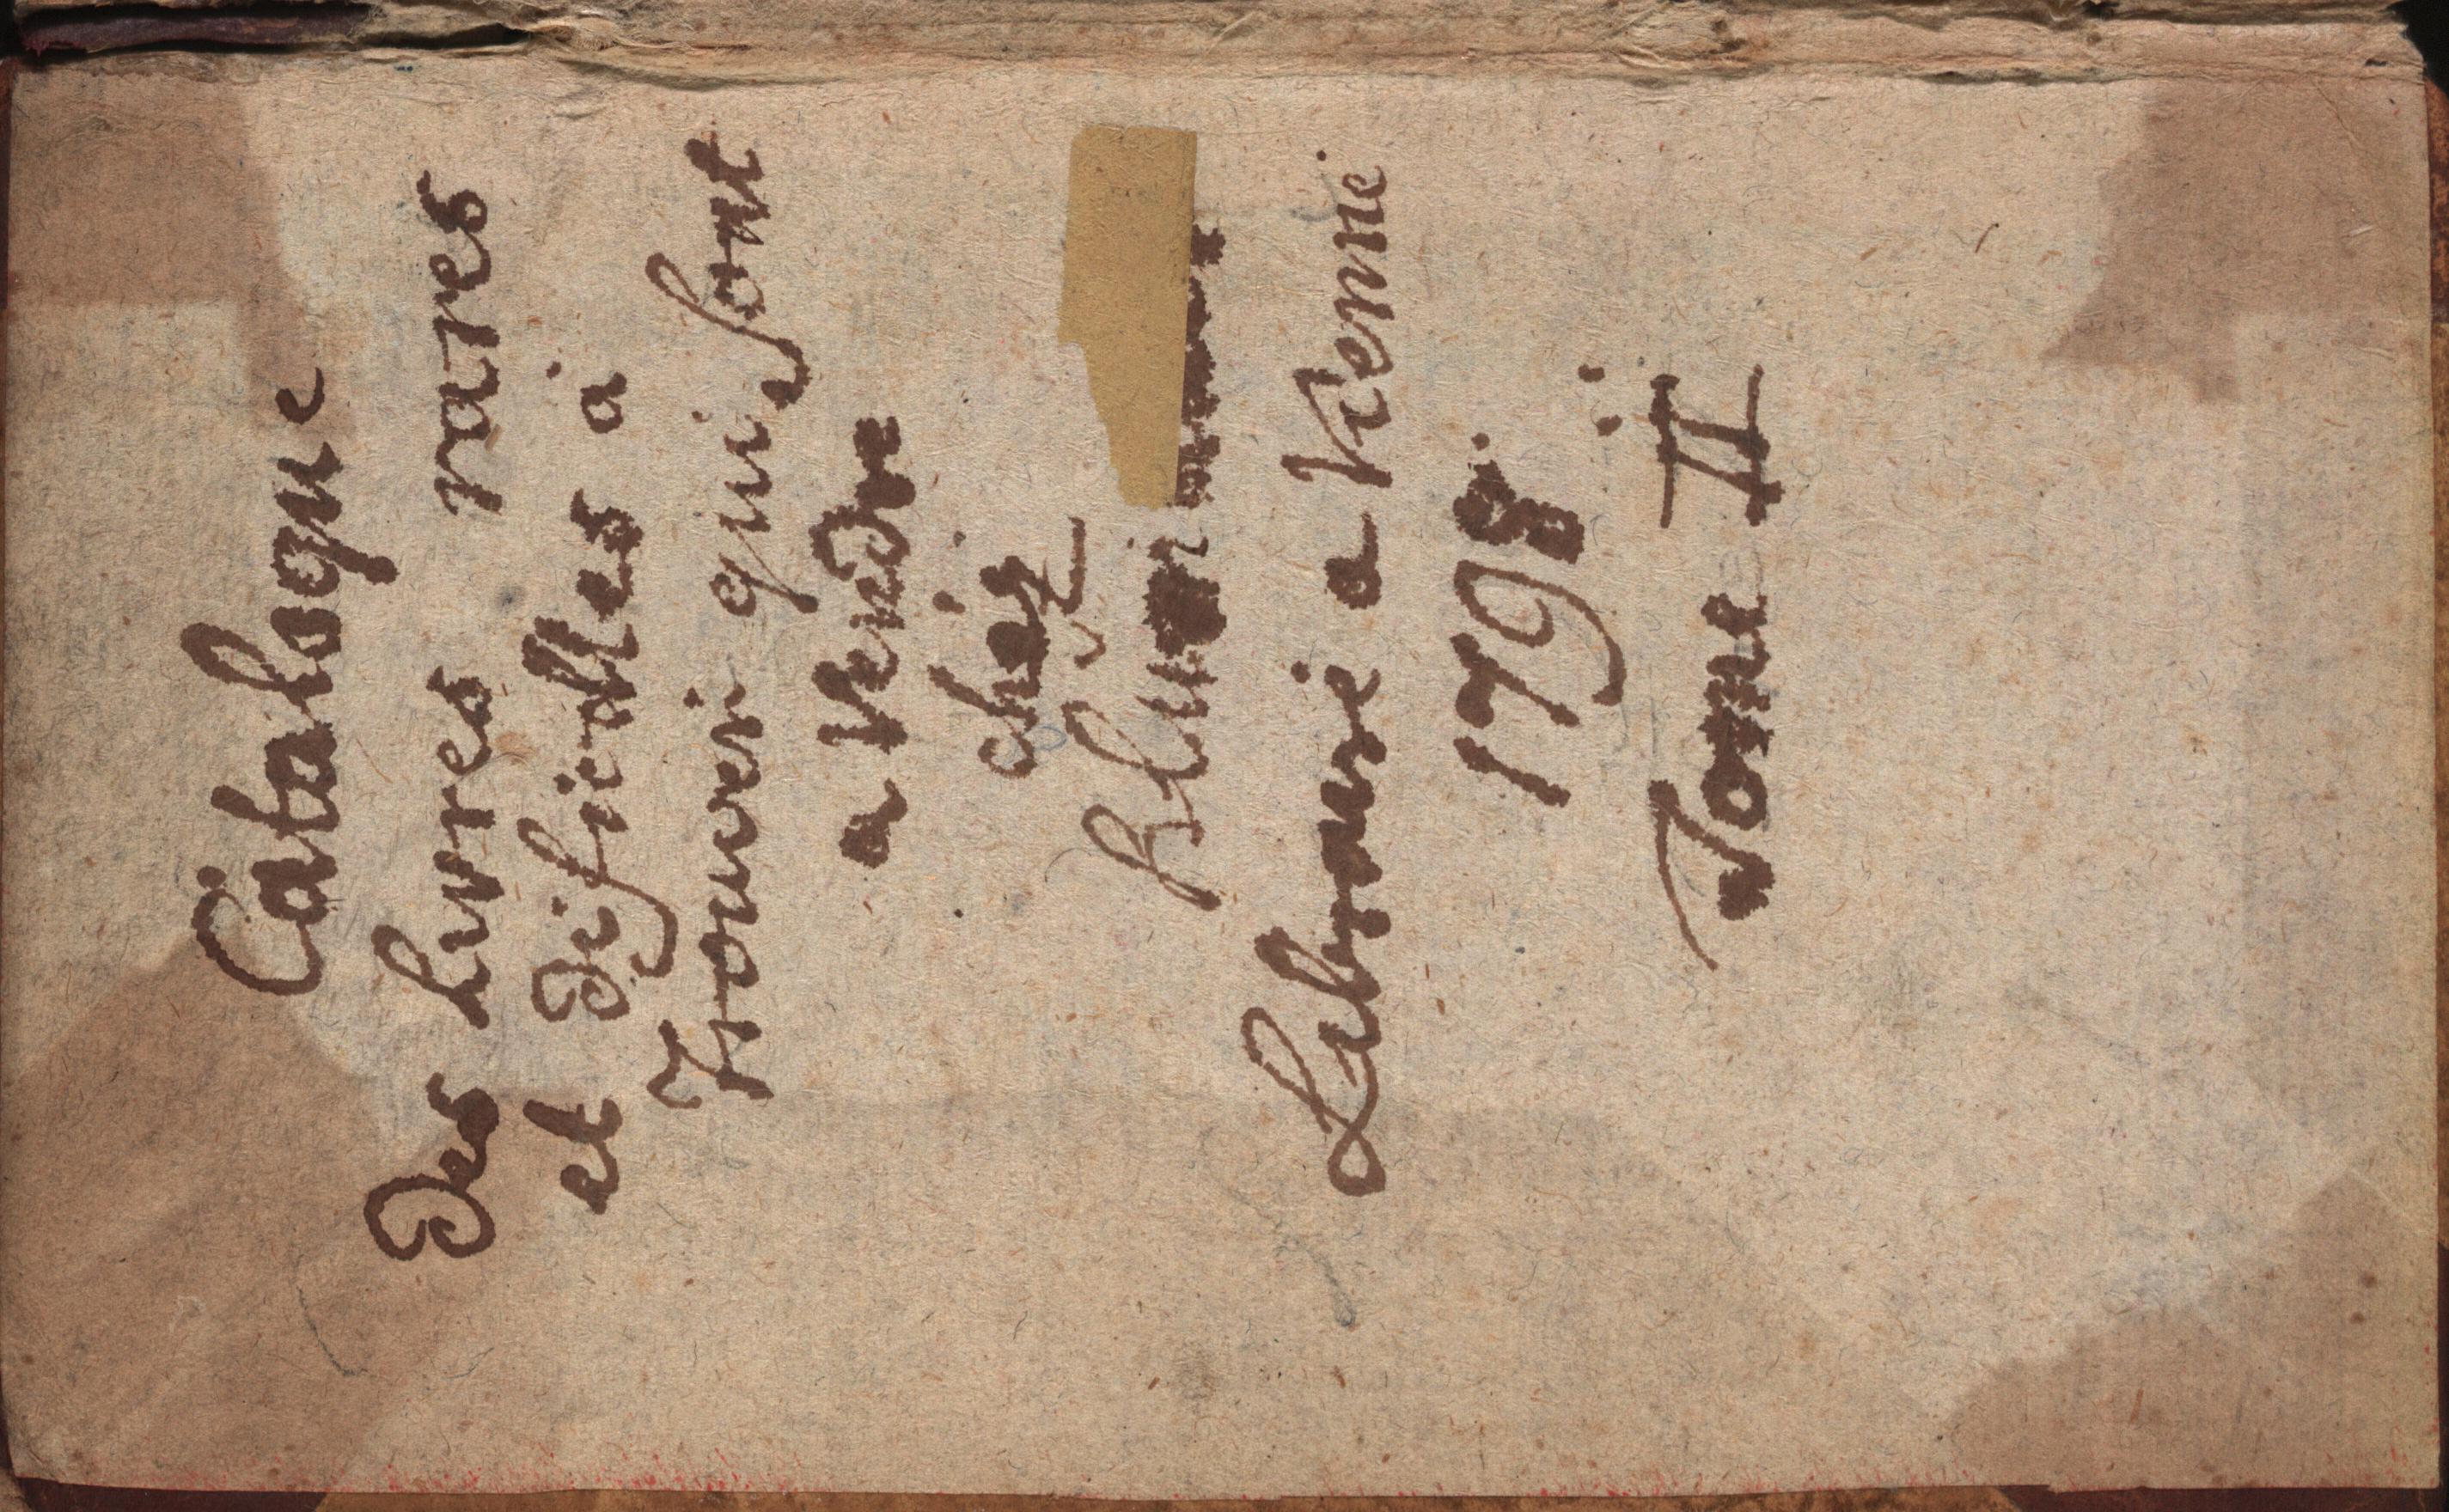 Catalogue
Des livres rares
et dificilles a
trouver qui sont
a vendre
chez
Libraire a Vienne
1798.
Tome II